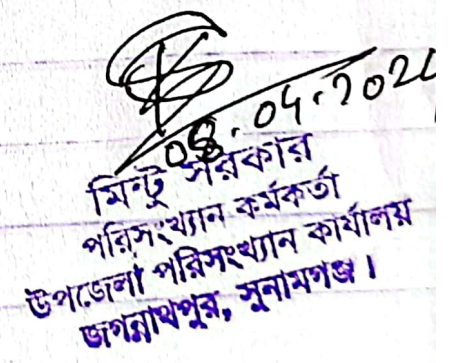 08.04.202
মিন্টু সরকার
পরিসংখ্যান কর্মকর্তা
উপজেলা পরিসংখ্যান কার্যালয়
জগন্নাথপুর, সুনামগঞ্জ।